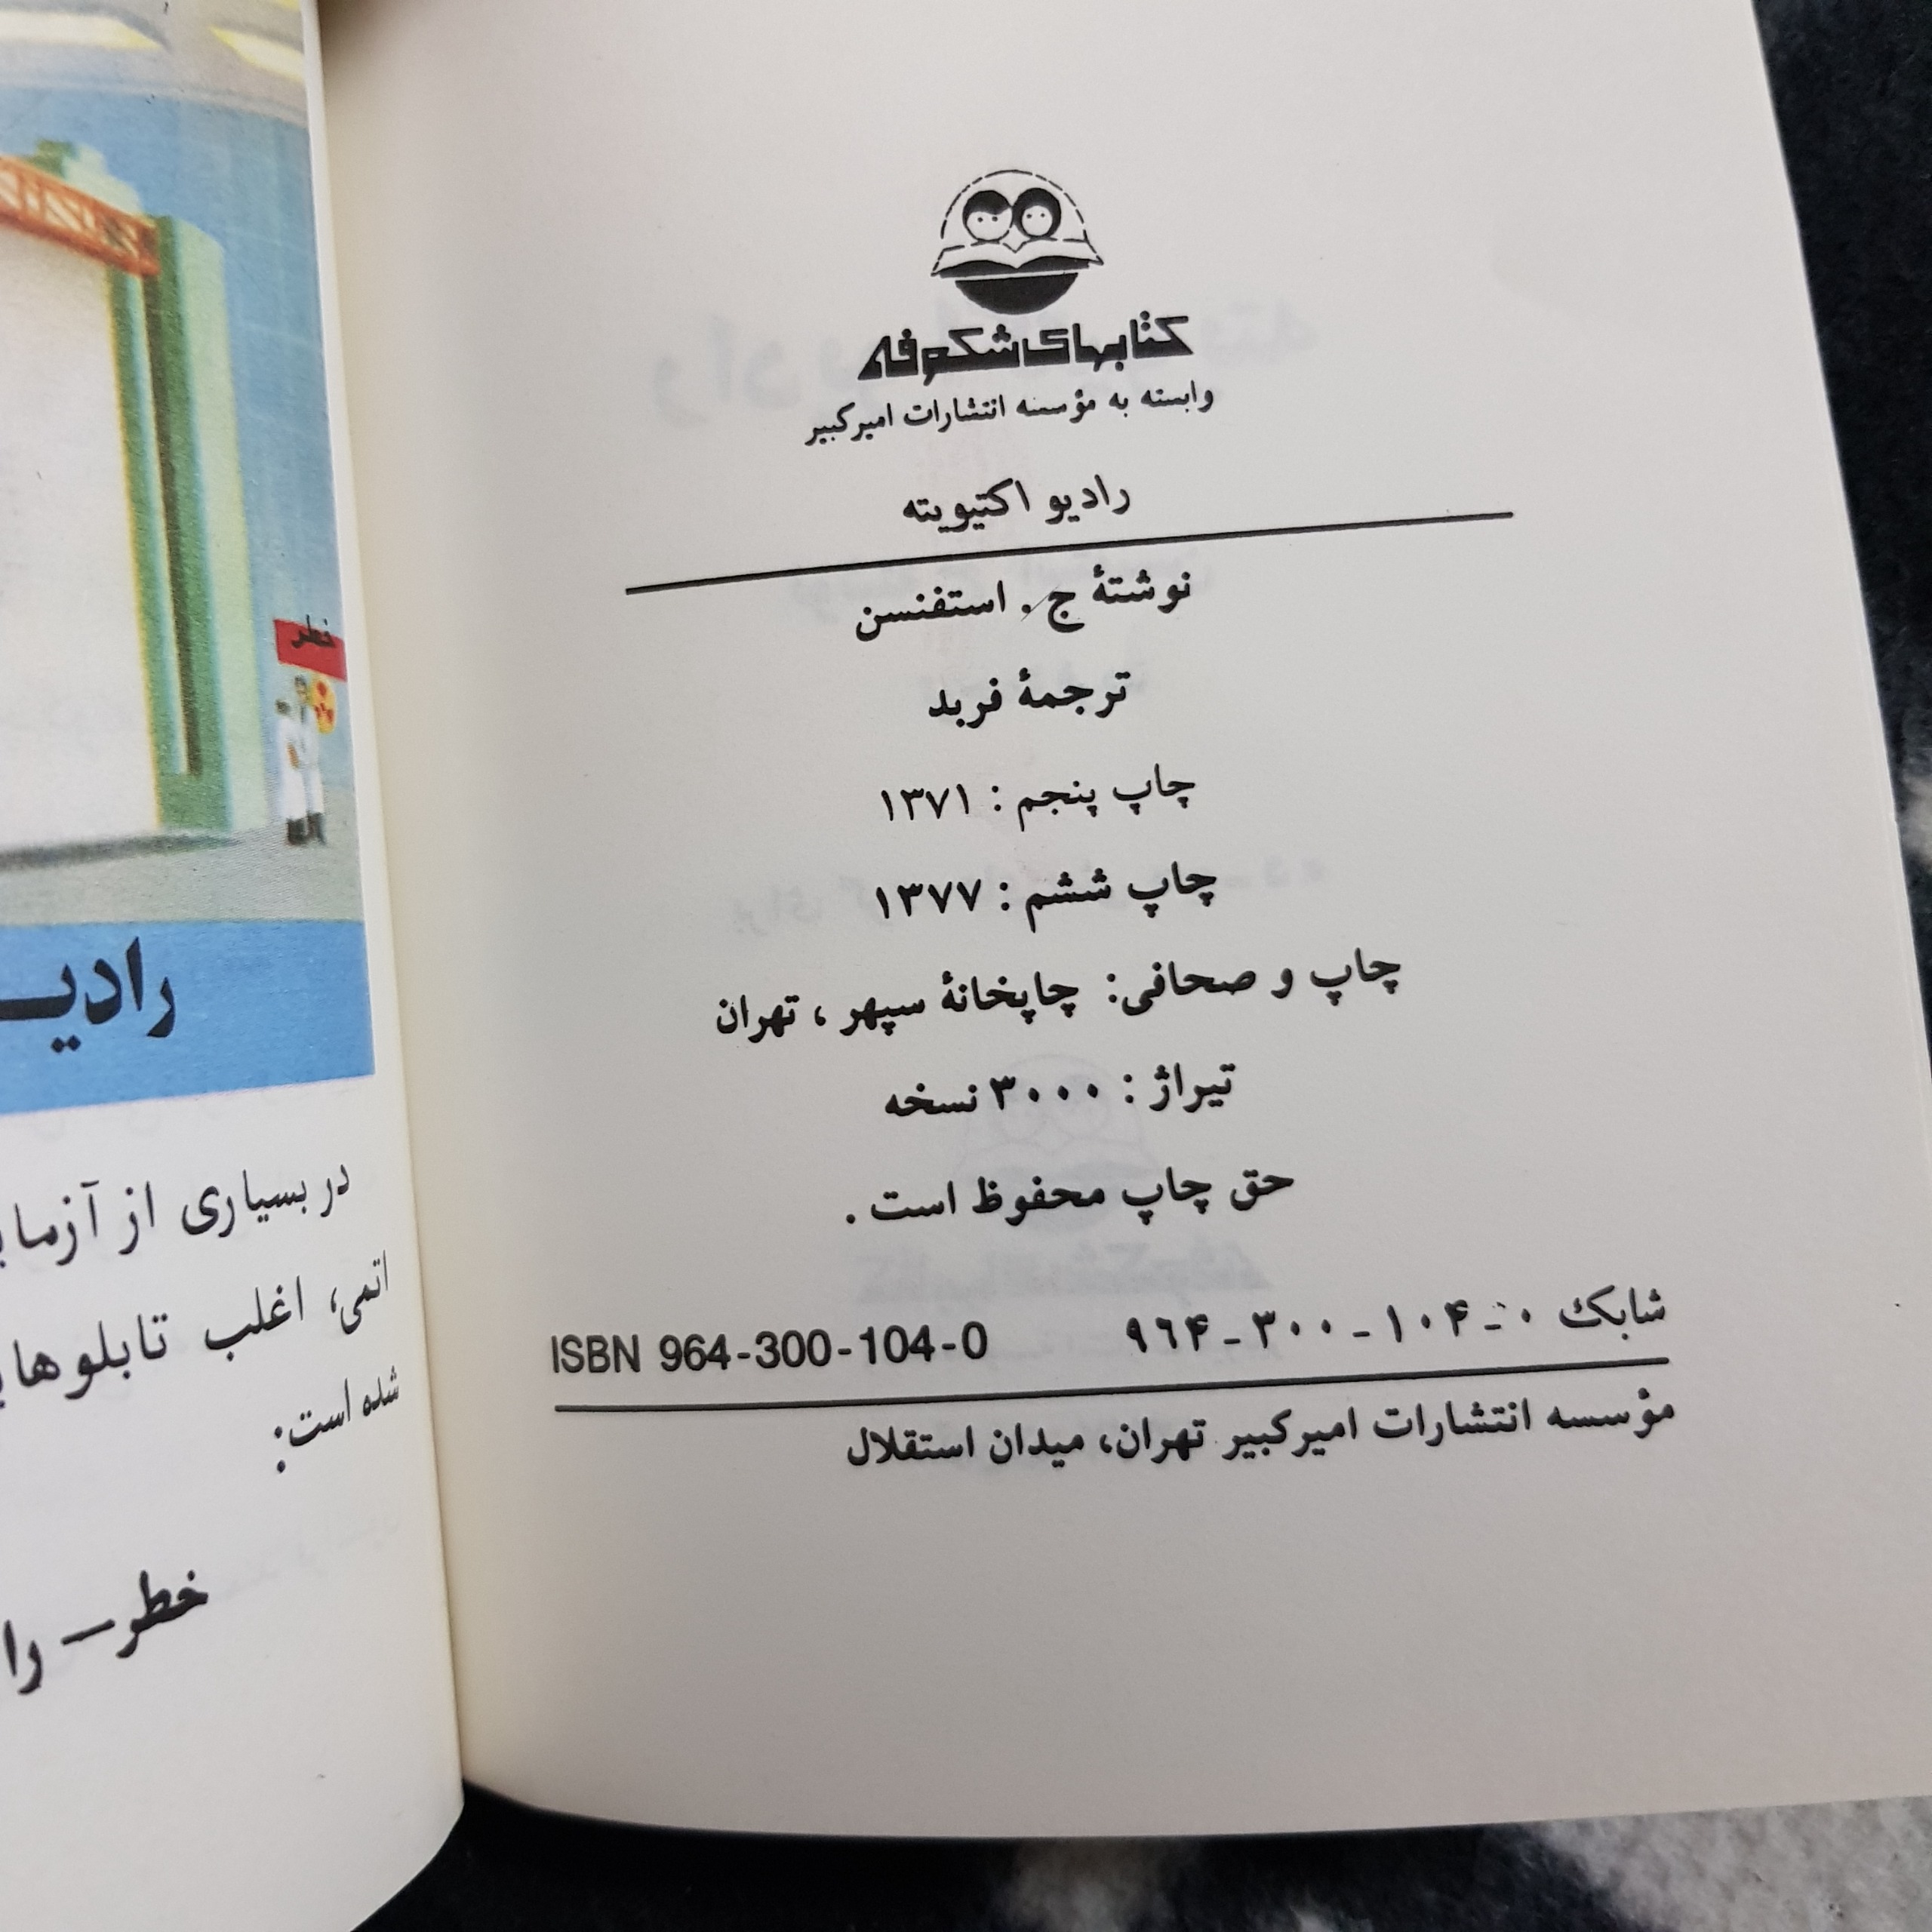 کتابهای شکوفه
وابسته به مؤسسه انتشارات امیرکبیر
رادیو اکتیویته
نوشتهٔ ج. استفنسن
ترجمهٔ فربد
چاپ پنجم : ۱۳۷۱
چاپ ششم : ۱۳۷۷
چاپ و صحافی: چاپخانهٔ سپهر ، تهران
تیراژ : ۳۰۰۰ نسخه
حق چاپ محفوظ است .
شابک ۰-۱۰۴-۳۰۰-۹۶۴ ISBN 964-300-104-0
مؤسسه انتشارات امیرکبیر تهران، میدان استقلال
خطر
رادیـ
در بسیاری از
اتمی، اغلب
شده است:
خطر–